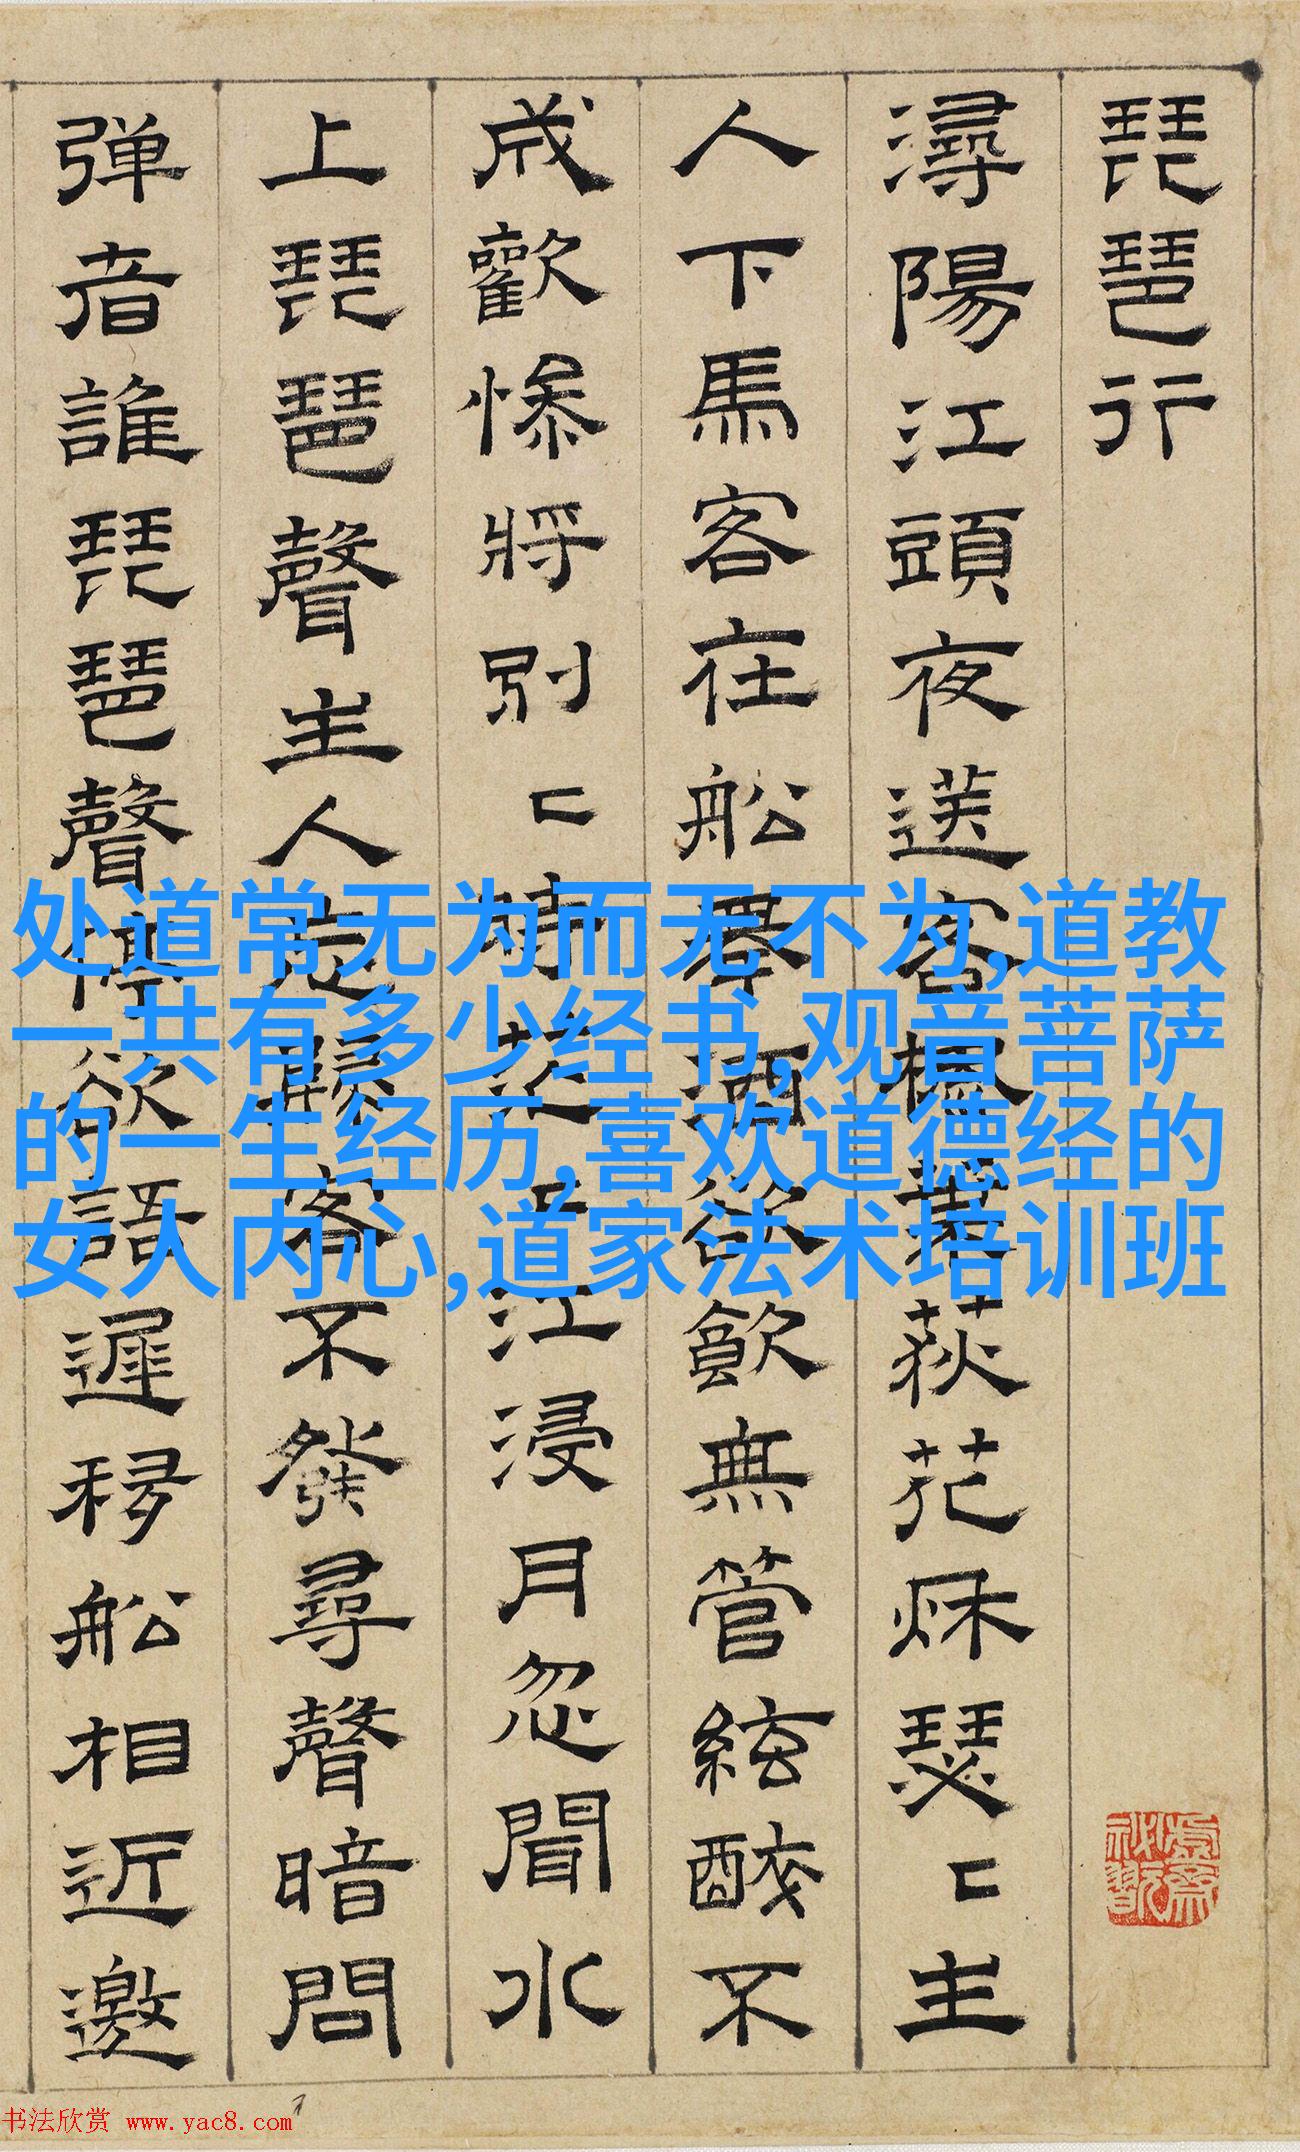 琵琶行
潯陽江頭夜送客楓葉荻花秌瑟〻主
人下馬客在船舉酒欲飲無管絃醉不
成歡慘將別〻時茫〻江浸月忽聞水
上琵琶聲主人忘歸客不發尋聲暗問
弹者誰琵琶聲停欲語遲移船相近邀
处道常无为而无不为,道教
一共有多少经书,观音菩萨
的一生经历,喜欢道德经的
女人内心,道家法术培训班
书法欣赏 www.yac8.com